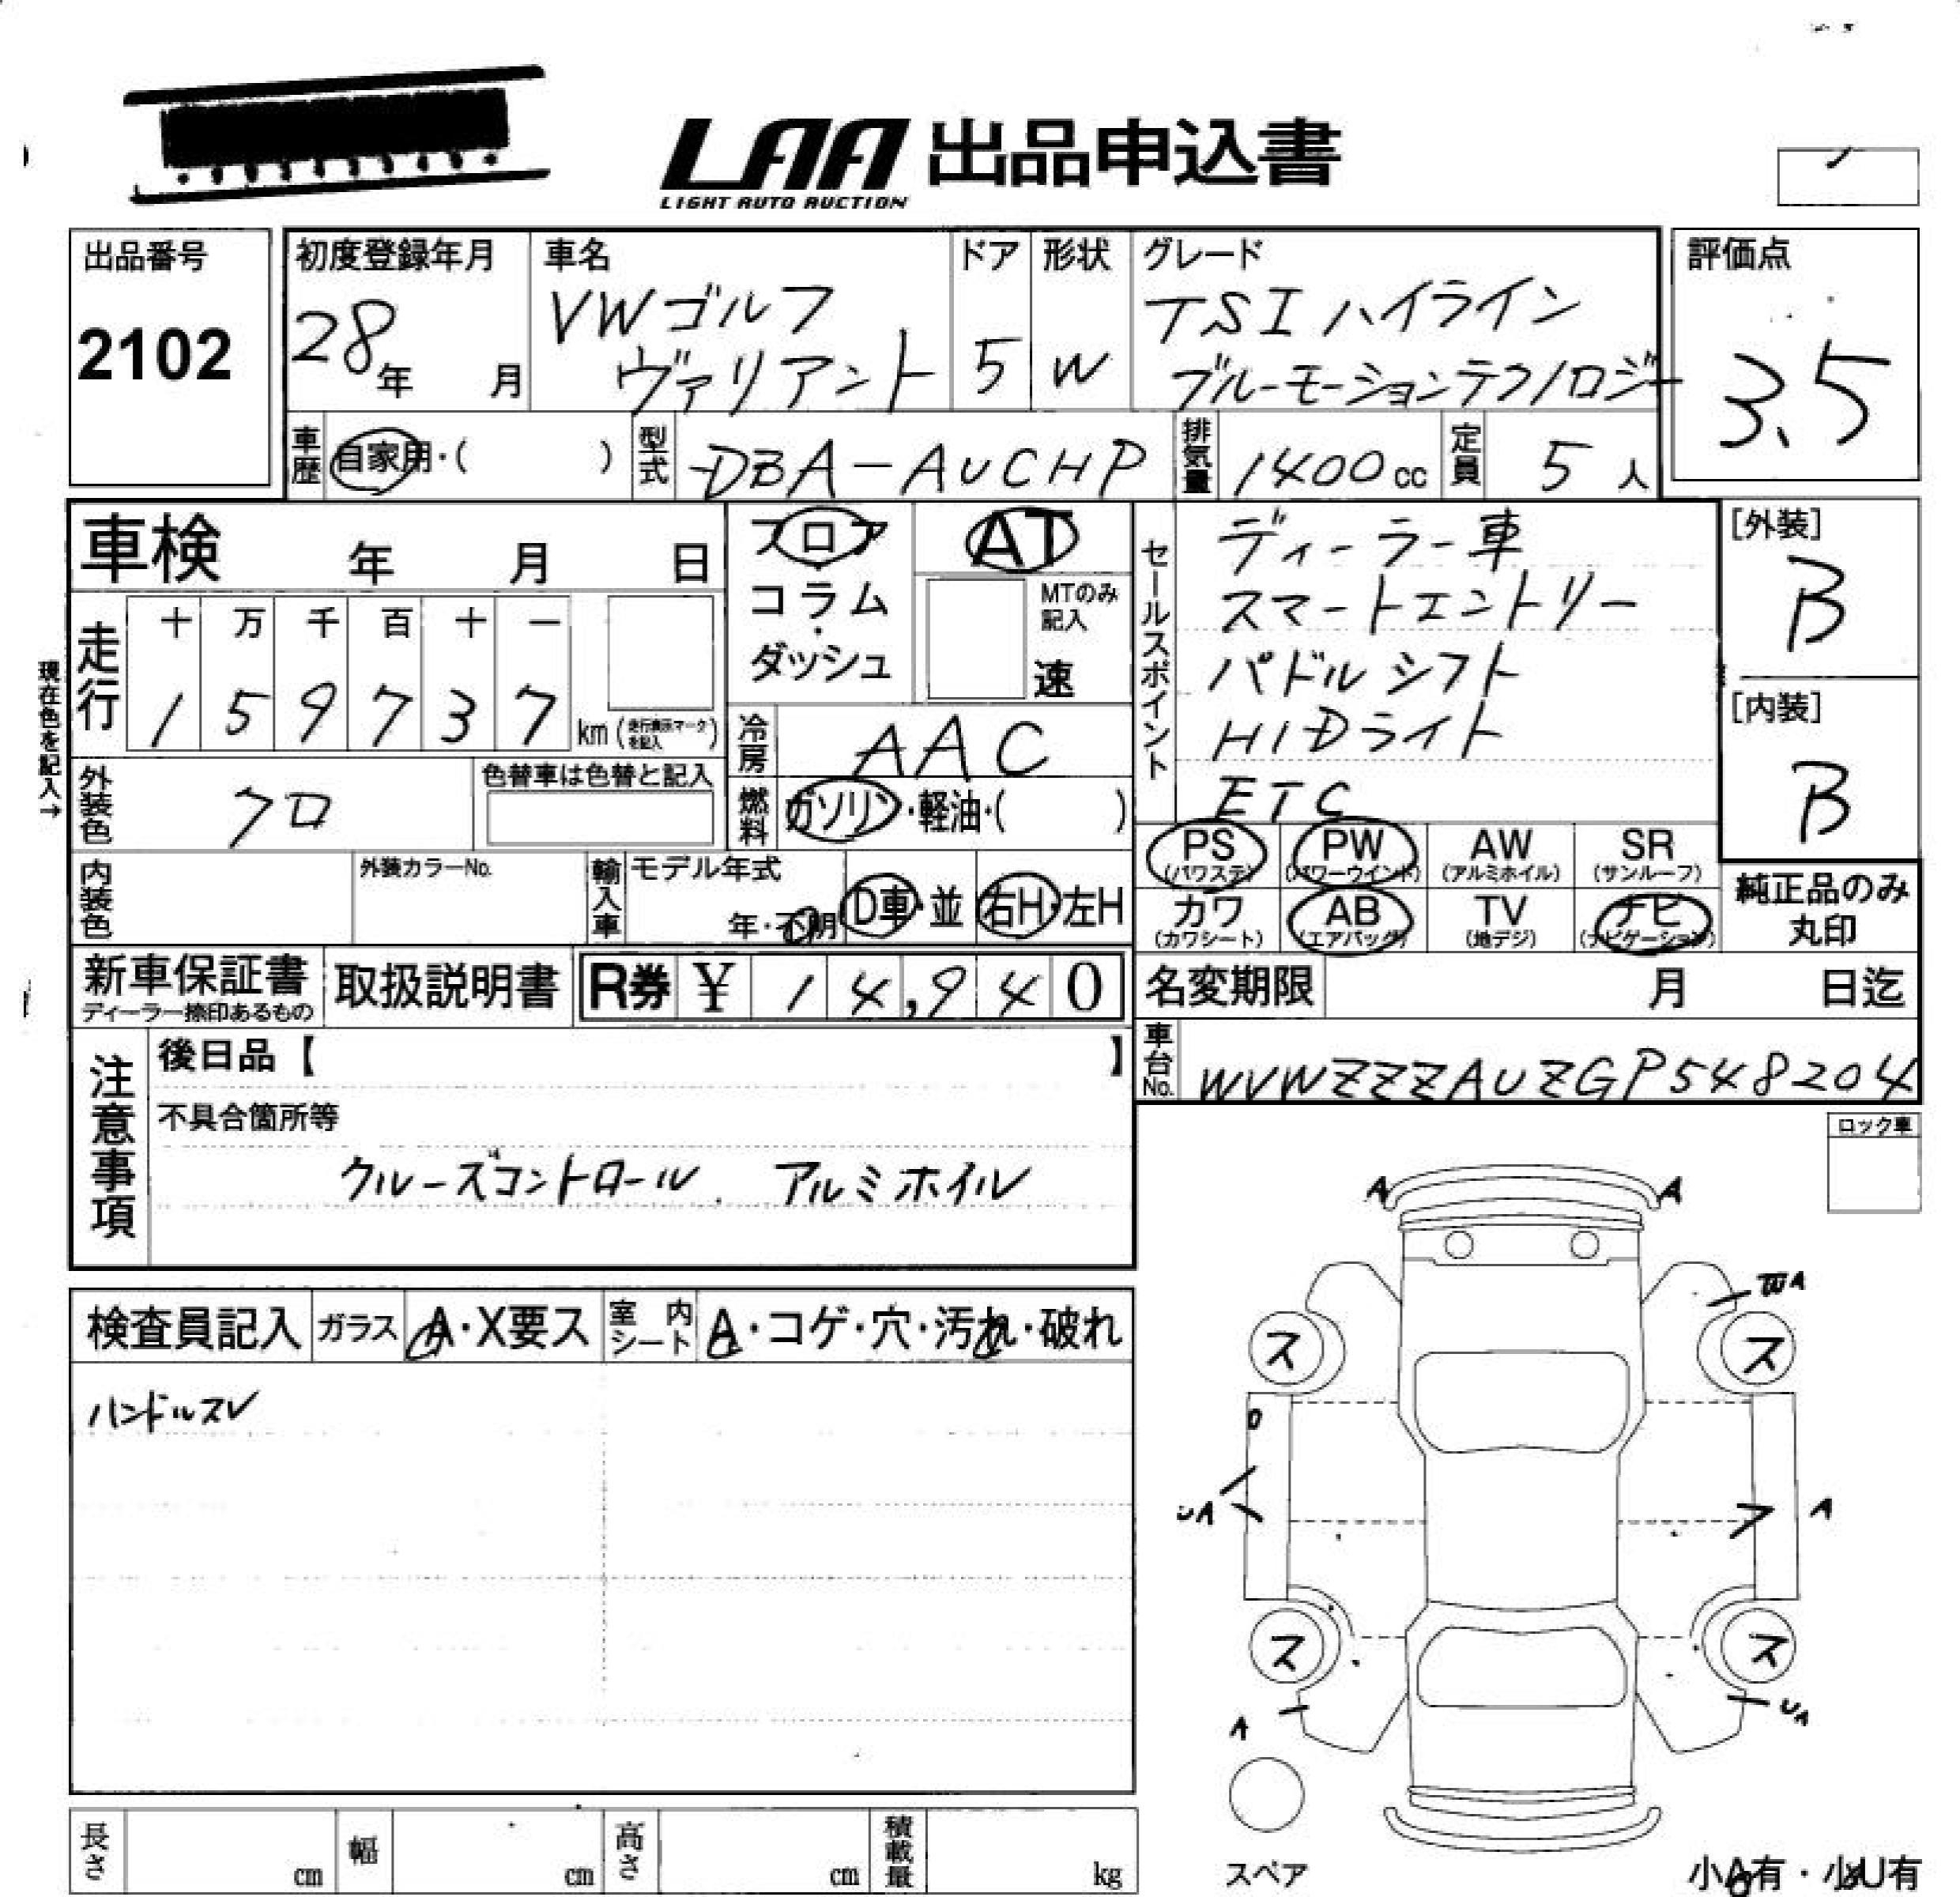 LAA 出品申込書
LIGHT AUTO AUCTION
出品番号
2102
初度登録年月
28年 月
車名
VWゴルフ
ヴァリアント
ドア
5
形状
W
グレード
TSIハイライン
ブルーモーションテクノロジー
評価点
3.5
車歴 自家用・( )
型式 DBA-AUCHP
排気量 1400cc
定員 5人
車検 年 月 日
フロア
コラム
・
ダッシュ
AT
MTのみ
記入
速
セールスポイント
ディーラー車
スマートエントリー
パドルシフト
HIDライト
ETC
[外装]
B
[内装]
B
現在色を記入→
走行
十 万 千 百 十 一
1 5 9 7 3 7 km (走行表示マークを記入)
冷房 AAC
外装色 クロ
色替車は色替と記入
燃料 ガソリン・軽油・( )
PS (パワステ) PW (パワーウインド) AW (アルミホイル) SR (サンルーフ)
カワ (カワシート) AB (エアバッグ) TV (地デジ) ナビ (ナビゲーション)
純正品のみ
丸印
内装色
外装カラーNo.
輸入車
モデル年式
年・不明
D車・並
右H・左H
新車保証書
ディーラー捺印あるもの
取扱説明書
R券 ¥ 14,940
名変期限 月 日迄
車台No. WVWZZZAUZGP548204
注意事項
後日品【 】
不具合箇所等
クルーズコントロール. アルミホイル
ロック車
検査員記入 ガラス A・X要ス 室内シート A・コゲ・穴・汚れ・破れ
ハンドルスレ
A A
ス ス
UA A
ス ス
A UA
スペア
小A有・小U有
長さ cm 幅 cm 高さ cm 積載量 kg